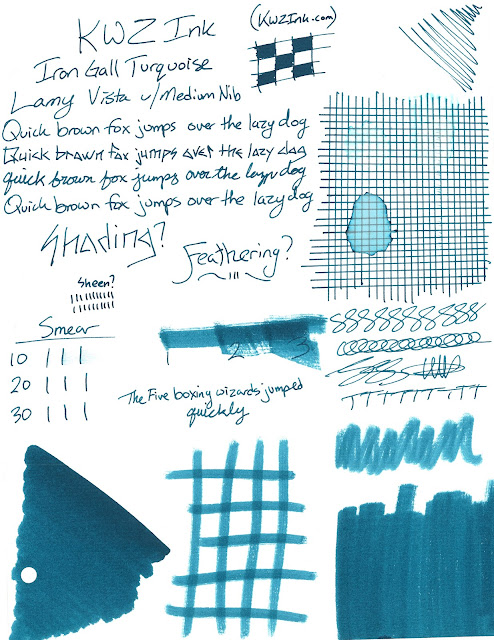 KWZ Ink
(KWZInk.com)
Iron Gall Turquoise
Lamy Vista w/Medium Nib
Quick brown fox jumps over the lazy dog
Quick brown fox jumps over the lazy dog
quick brown fox jumps over the lazy dog
Quick brown fox jumps over the lazy dog
Shading?
Feathering?
Sheen?
Smear
10
20
30
1 2 3
The Five boxing wizards jumped
quickly